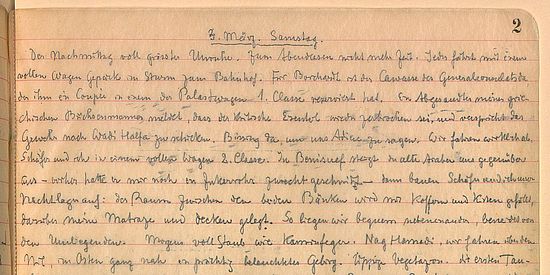 2
7. März. Samstag.
Der Nachmittag voll grösster Unruhe. Zum Abendessen nicht mehr Zeit. Jeder fährt mit einem
vollen Wagen Gepäck im Sturm zum Bahnhof. Für Borchardt ist der Cawasse des Generalconsulats da
der ihm ein Coupée in einem der Palastwagen 1. Classe reserviert hat. Ein Abgesandter meines
meldet, dass der kritische zerbrochen sei, und verspricht das
Gewehr nach Wadi Halfa zu schicken. da, um uns Adieu zu sagen. Wir fahren
Schäfer und ich in einem vollen Wagen 2. Classe. In Benisuef steigt der alte Araber uns gegenüber
aus – vorher hatte er mir noch ein Zuckerrohr zurecht geschnitzt – dann bauen Schäfer und ich unser
Nachtlager auf: der Raum zwischen den beiden Bänken wird mit Koffern und Kisten gefüllt,
darüber meine Matraze und Decken gelegt. So liegen wir bequem nebeneinander, beneidet von
den Umliegenden. Morgens voll Staub wie Kaminfeger. Nag Hamadi, wir fahren über den
Nil, im Osten ganz nah ein prächtig beleuchtetes Gebirg. Üppige Vegetation, die ersten